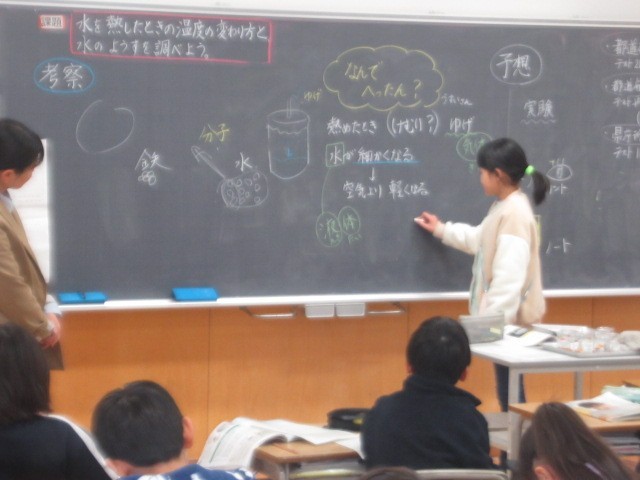 課題
水を熱したときの温度の変わり方と
水のようすを調べよう。
考察
鉄
分子
水
ゆげ
なんで
へったん?
熱めたとき (けむり?) ゆげ
水が細かくなる
↓
空気より軽くなる
液体
予想
実験
ノート
ノート